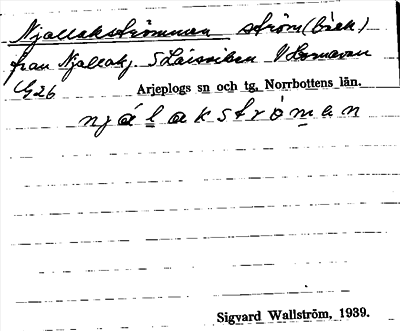 Njallakströmmen ström (bäck)
från Njallakj. S Laisviken V Hornavan
G26 Arjeplogs sn och tg, Norrbottens län.
njálakströmen
Sigvard Wallström, 1939.